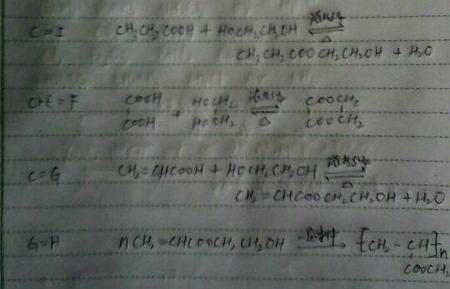 C=I CH₃CH₂COOH + HOCH₂CH₂OH ⇌ 浓H₂SO₄ △
CH₃CH₂COOCH₂CH₂OH + H₂O
C+E=F COOH HOCH₂ 浓H₂SO₄ COOCH₂
COOH + HOCH₂ ⇌ △ COOCH₂
C=G CH₂=CHCOOH + HOCH₂CH₂OH ⇌ 浓H₂SO₄ △
CH₂=CHCOOCH₂CH₂OH + H₂O
G=H nCH₂=CHCOOCH₂CH₂OH → [CH₂-CH]n
COOCH₂